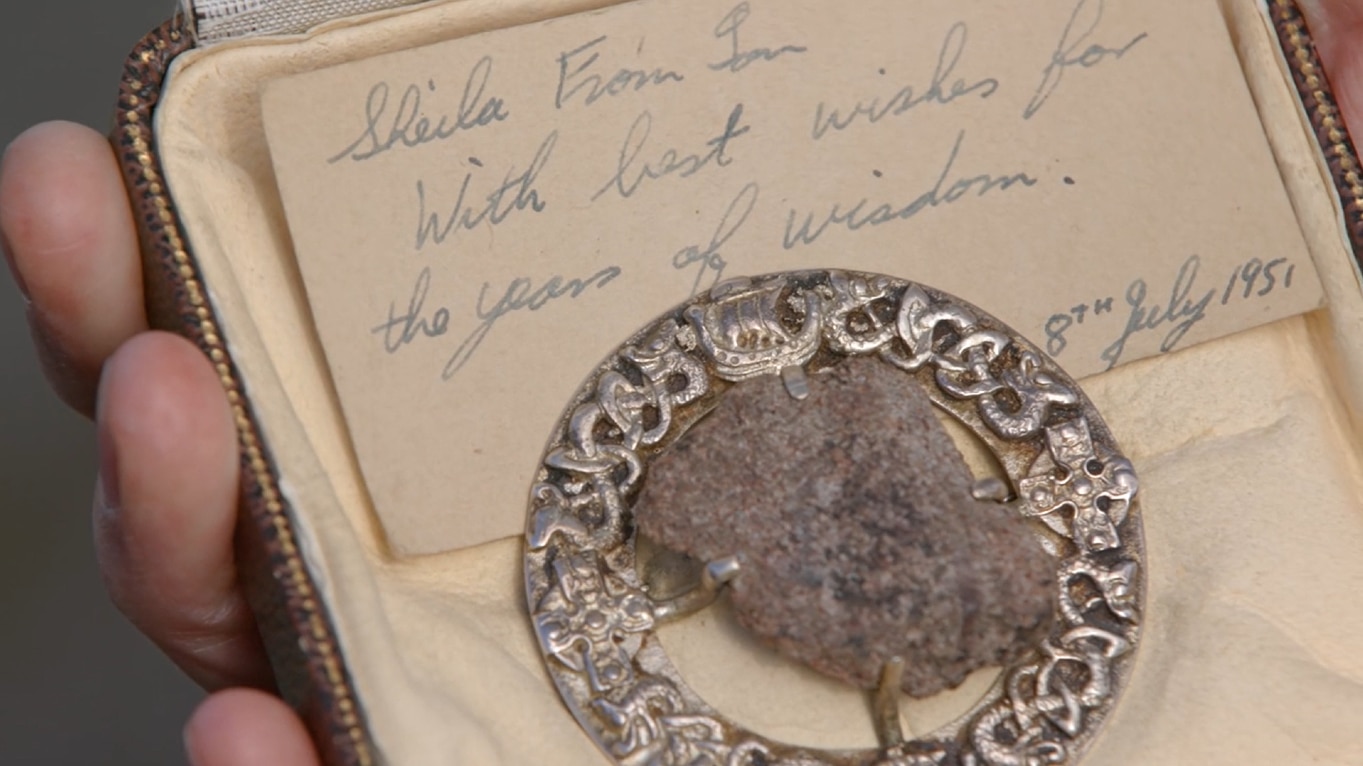 Sheila From Ian
With best wishes for
the years of wisdom.
8TH July 1951